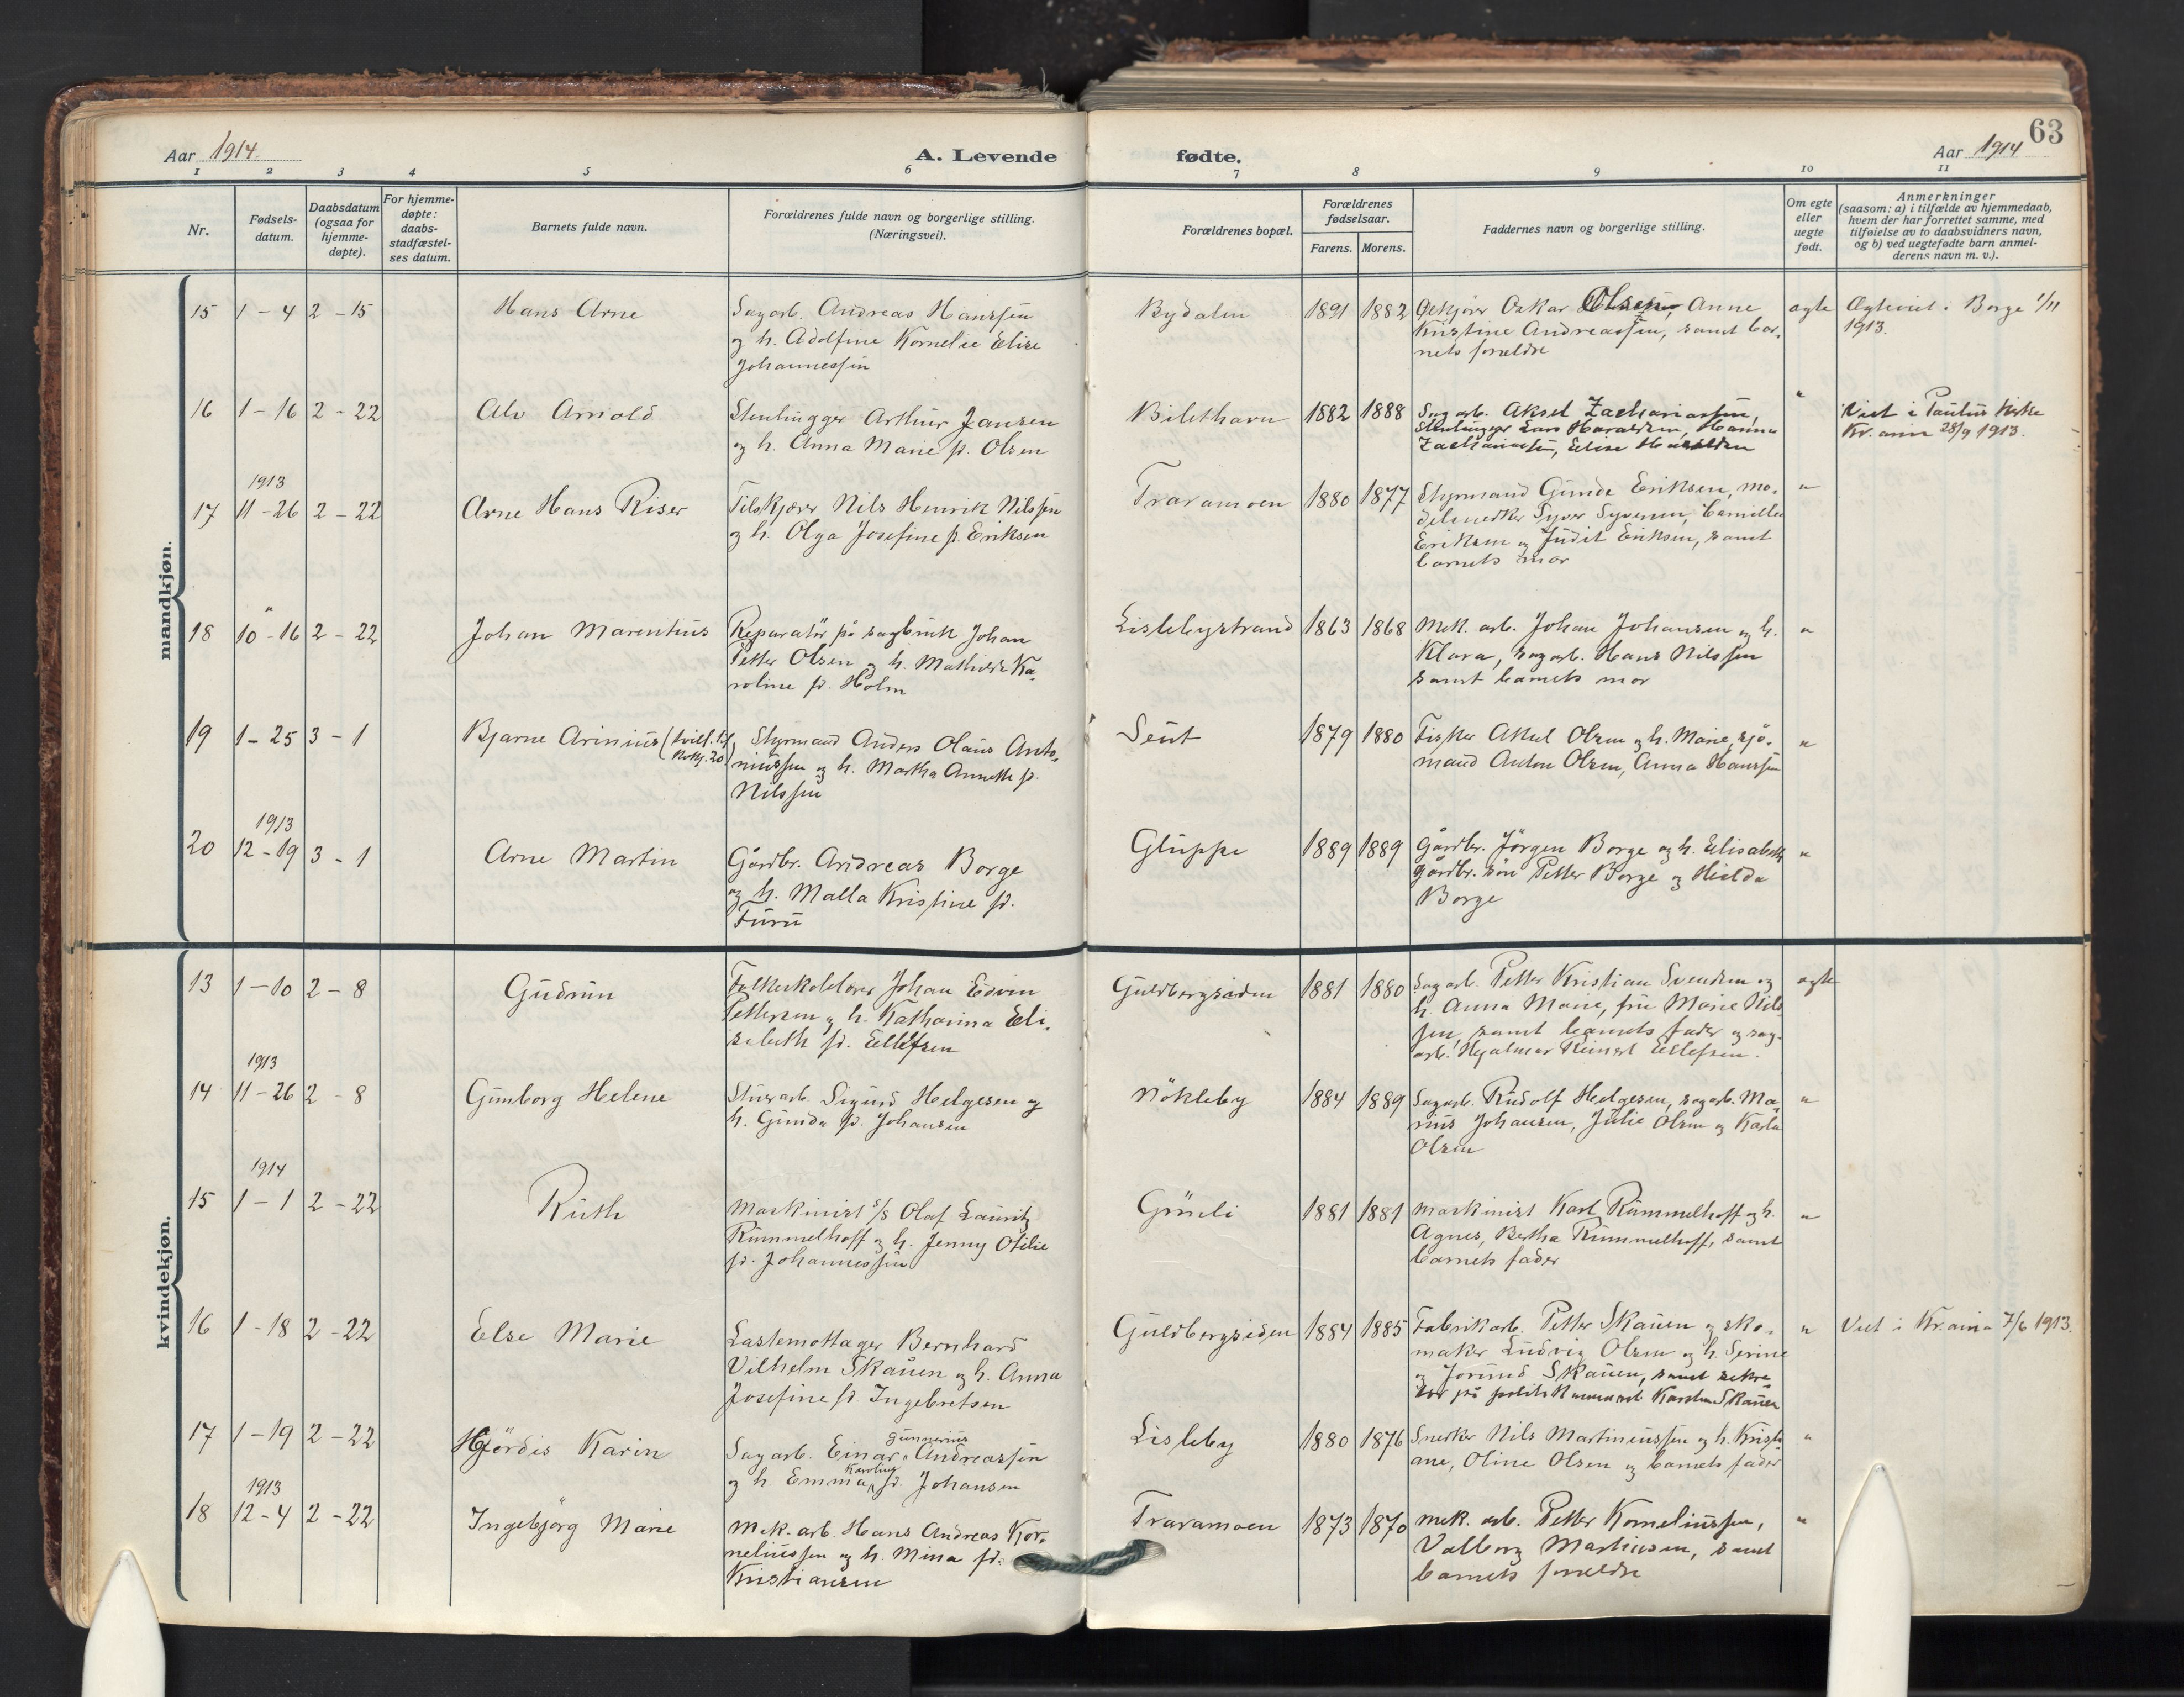 Aar 1914.
A. Levende
fødte.
Aar 1914
63
1 2 3 4 5 6 7 8 9 10 11
Nr.
Fødsels-
datum.
Daabsdatum
(ogsaa for
hjemme-
døpte).
For hjemme-
døpte:
daabs-
stadfæstel-
ses datum.
Barnets fulde navn.
Forældrenes fulde navn og borgerlige stilling.
(Næringsvei).
Forældrenes bopæl.
Forældrenes
fødselsaar.
Farens. Morens.
Faddernes navn og borgerlige stilling.
Om egte
eller
uegte
født.
Anmerkninger
(saasom: a) i tilfælde av hjemmedaab,
hvem der har forrettet samme, med
tilføielse av to daabsvidners navn,
og b) ved uegtefødte barn anmel-
derens navn m. v.).
mandkjøn.
15 1-4 2-15 Hans Arne
Sagarb. Andreas Hanssen
og h. Adolfine Kornelie Elise
Johannessen
Bydalen 1891 1882
Oskar Olsen, Anne
Kristine Andreassen, samt bar-
nets forældre
egte
Ægteviet i Borge 1/11
1913.
16 1-16 2-22 Alv Arnold
Stenhugger Arthur Jansen
og h. Anna Marie f. Olsen
Bilethavn 1882 1888
Sagarb. Aksel Zachariassen,
Stenhugger Lars Haraldsen, Hanna
Zachariassen, Elise Haraldsen
"
Viet i Paulus kirke
Kr.ania 28/9 1913.
1913
17 11-26 2-22 Arne Hans Riser
Tilskjærer Nils Henrik Nilssen
og h. Olga Josefine f. Eriksen
Traramoen 1880 1877
Styrmand Gunde Eriksen, mo-
delsnedker Syver Syversen, Camilla
Eriksen og Judit Eriksen, samt
barnets mor
"
18 10-16 2-22 Johan Marentius
Reparatør på sagbruk Johan
Petter Olsen og h. Mathilde Ka-
roline f. Holm
Lislebystrand 1863 1868
Mek. arb. Johan Johansen og h.
Klara, sagarb. Hans Nilssen
samt barnets mor
"
19 1-25 3-1 Bjarne Arinius
Styrmand Anders Olaus Anto-
niussen og h. Martha Annette f.
Nilssen
Seut 1879 1880
Fisker Aksel Olsen og h. Marie, sjø-
mand Anton Olsen, Anna Hanssen
"
1913
20 12-19 3-1 Arne Martin
Gårdbr. Andreas Borge
og h. Malla Kristine f.
Furu
Gluppe 1889 1889
Gårdbr. Jørgen Borge og h. Elisabeth
gårdbr. søn Petter Borge og Hilda
Borge
"
kvindekjøn.
13 1-10 2-8 Gudrun
Johan Edvin
Pettersen og h. Katharina Eli-
sabeth f. Ellefsen
Guldbergsiden 1881 1880
Sagarb. Petter Kristian Svendsen og
h. Anna Marie, fru Marie Nils-
sen, samt barnets fader og sag-
arb. Hjalmar Reinert Ellefsen.
egte
1913
14 11-26 2-8 Gunborg Helene
Stuerarb. Sigurd Helgesen og
h. Gunda f. Johansen
Nökleby 1884 1889
Sagarb. Rudolf Helgesen, sagarb. Ma-
rius Johansen, Julie Olsen og Karla
Olsen
"
1914
15 1-1 2-22 Ruth
Maskinist s/s Olaf Lauritz
Rummelhoff og h. Jenny Otilie
f. Johannessen
Grönli 1881 1881
Maskinist Karl Rummelhoff og h.
Agnes, Bertha Rummelhoff, samt
barnets fader
"
16 1-18 2-22 Else Marie
Lastemottager Bernhard
Vilhelm Skauen og h. Anna
Josefine f. Ingebretsen
Guldbergsiden 1884 1885
Fabrikarb. Petter Skauen og sko-
maker Ludvig Olsen og h. Serine
og Jorund Skauen, samt sekre-
tær på Karsten Skauen
"
Viet i Kr.ania 7/6 1913.
17 1-19 2-22 Hjördis Karin
Gunnerius
Sagarb. Einar Andreassen
Karoline
og h. Emma f. Johansen
Lisleby 1880 1876
Snerker Nils Martiniussen og h. Kristi-
ane, Oline Olsen og barnets fader
"
1913
18 12-4 2-22 Ingebjörg Marie
Mek. arb. Hans Andreas Kor-
neliussen og h. Mina f.
Kristiansen
Traramoen 1873 1870
mek. arb. Petter Korneliussen,
Valborg Martinsen, samt
barnets forældre
"